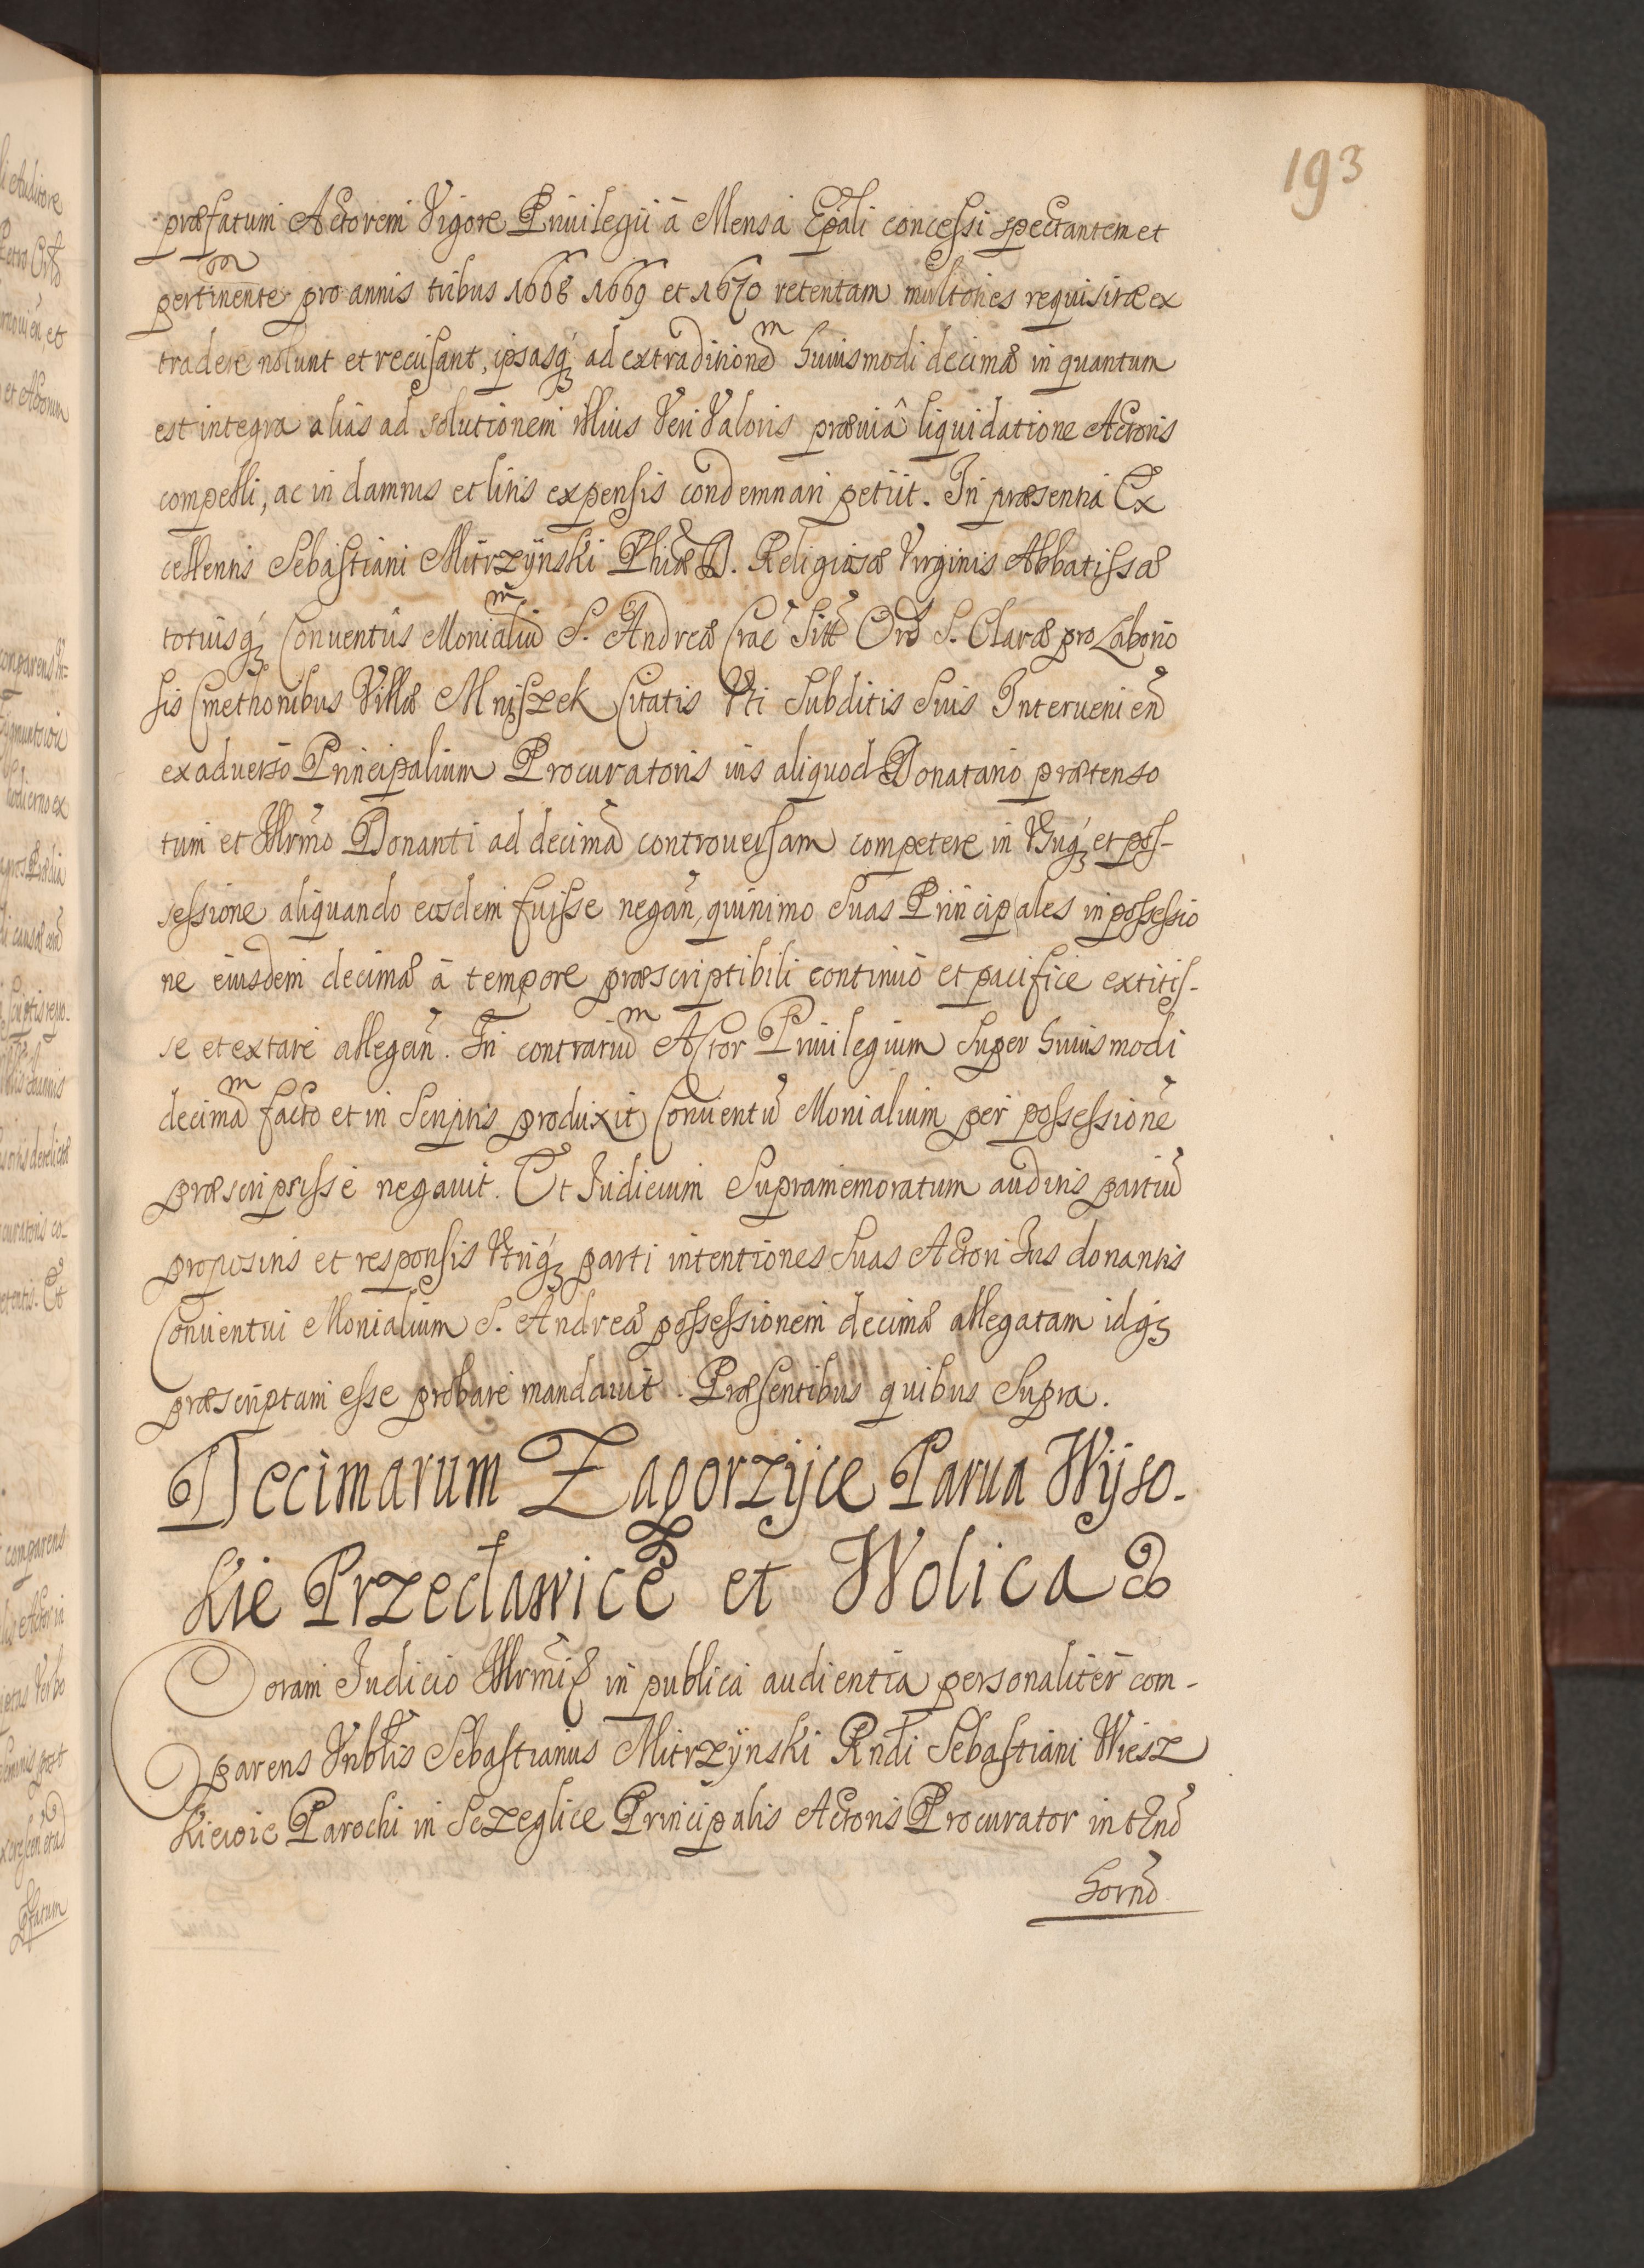 193
præfatum Actorem Vigore Priuilegii â Mensa Epāli concessi spectantem et
pertinentem pro annis tribus 1668 1669 et 1670 retentam multoties requisitæ ex
tradere nolunt et recusant, ipsasq₃ ad extraditionem huiusmodi decimæ in quantum
est integra alias ad solutionem illius Veri Valoris præuiâ liquidatione Actoris
compelli, ac in damnis et litis expensis condemnari petiit. In præsentia Ex
cellentis Sebastiani Mitrzÿnski Phiæ D. Religiosæ Virginis Abbatissæ
totiusq₃ Conuentûs Monialium S. Andreæ Crac̄ Ord S. Claræ pro Laborio
sis Cmethonibus Villæ Mniszek Citatis Vti Subditis Suis Interuenien̄
ex aduerso Principalium Procuratoris ius aliquod Donatario prætenso
tum et Illrm̄o Donanti ad decimā controuersam competere in Vsuq₃ et pos-
sessione aliquando eosdem fuisse negan̄, quinimo Suas Principales in possessio
ne eiusdem decimæ â tempore præscriptibili continuò et pacifice extitis-
se et extare allegan̄. In contrarium Actor Priuilegium Super huiusmodi
decimam facto et in Scriptis produxit Conuentū Monialium per possessionē
præscripsisse negauit. Et Iudicium Supramemoratum auditis partiū
propositis et responsis Vtriq₃ parti intentiones Suas Actori Ius donantis
Conuentui Monialium S. Andreæ possessionem decimæ allegatam idq₃
præscriptam esse probare mandauit. Præsentibus quibus Supra.
Decimarum Zagorzÿce Parua Wÿso-
kie Przecławice et Wolica
Coram Iudicio in publica audientia personaliter com-
parens Nbłis Sebastianus Mitrzÿnski Rnđi Sebastiani Wiesz
kiewic Parochi in Sczeglice Principalis Actoris Procurator in tEnđ
hornđ